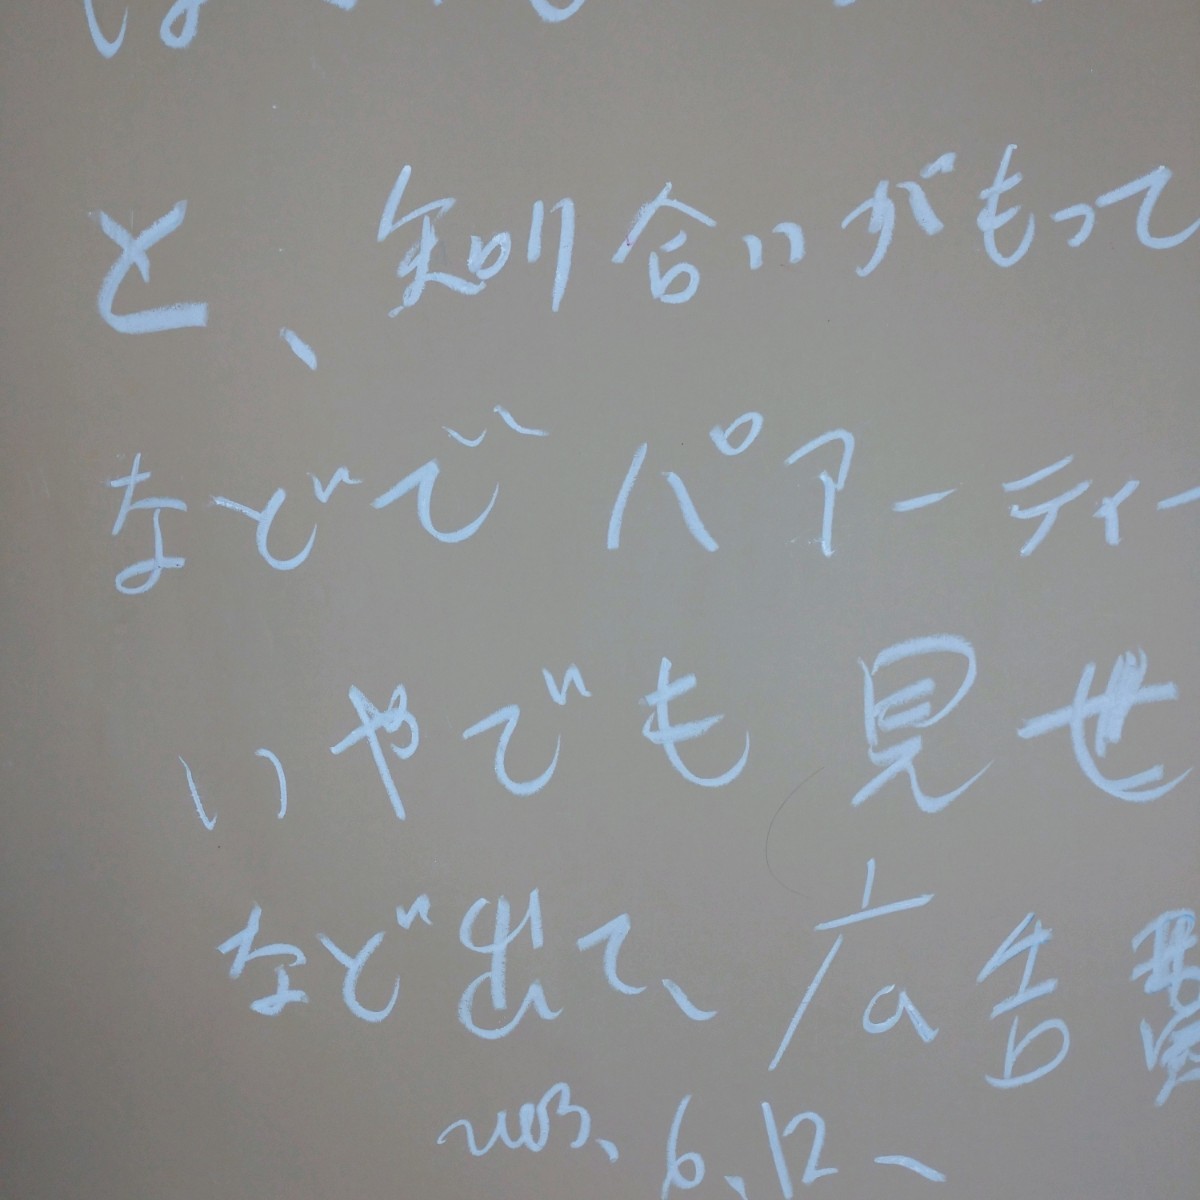 と、知り合いがもって
などでパアーティー
いやでも見せ
など出て、広告費
2003、6、12、